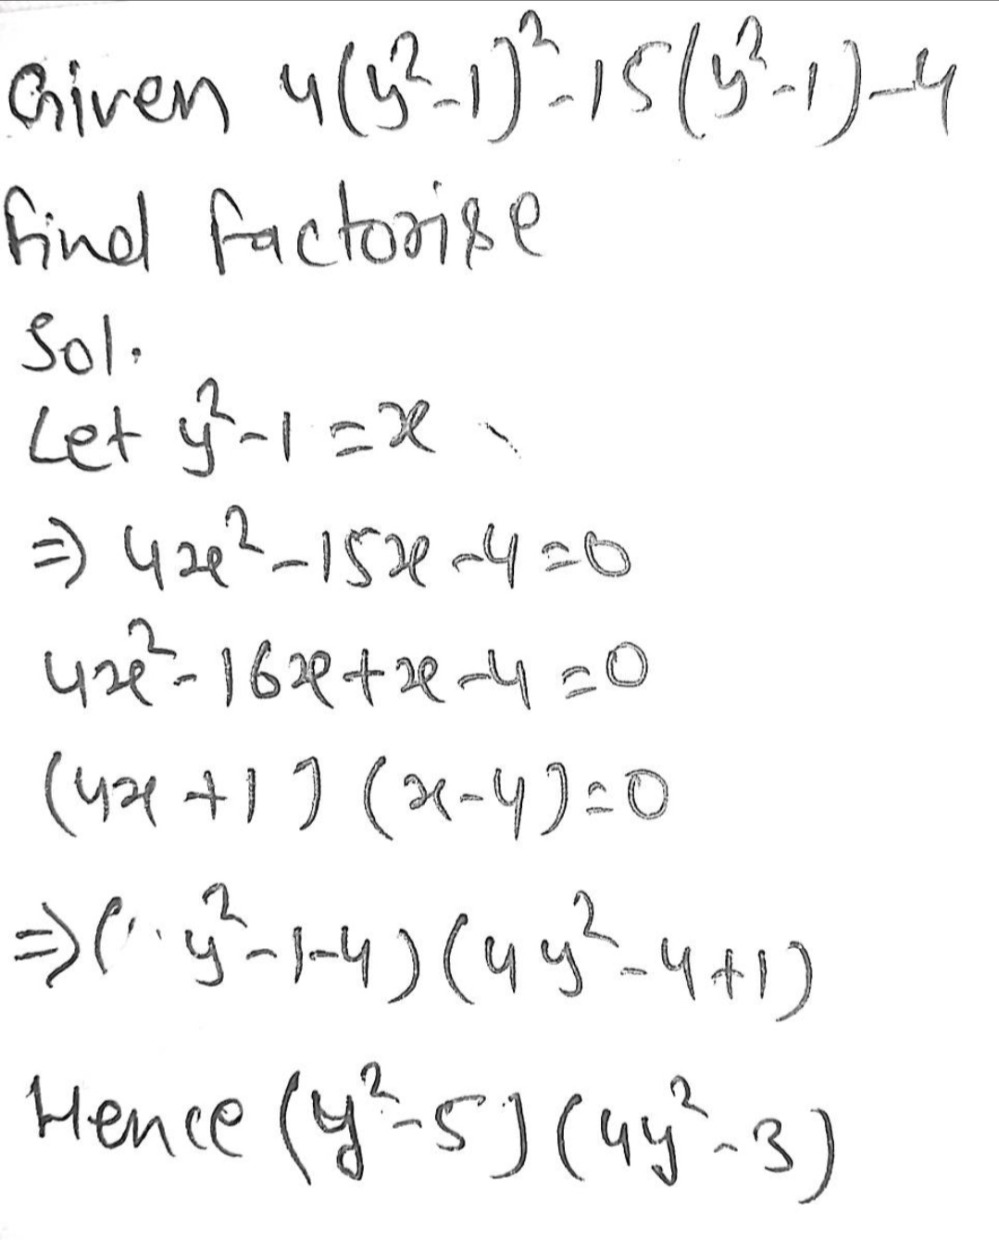 Given 4(y²-1)²-15(y²-1)-4
find factorise
Sol.
Let y²-1=x
⇒ 4x²-15x-4=0
4x²-16x+x-4=0
(4x+1)(x-4)=0
⇒(y²-1-4)(4y²-4+1)
Hence (y²-5)(4y²-3)